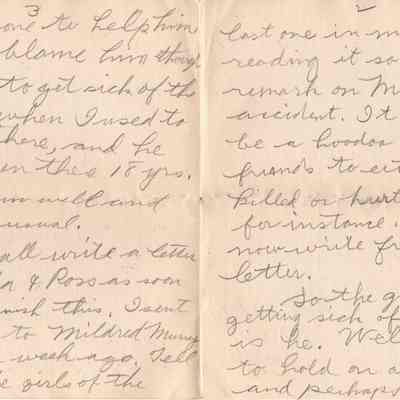 3
one to help him
blame him though
to get sick of the
when I used to
there, and he
en thee 18 yrs.
m well and
usual.
all write a letter
a & Ross as soon
nish this. I sent
to Mildred Murray
week ago. Tell
e girls of the
2
last one in m
reading it so
remark on M
accident. It
be a hoodoo
friends to eit
killed or hurt
for instance.
now write fr
letter.
So the g
getting sick of
is he. Wel
to hold on a
and perhaps